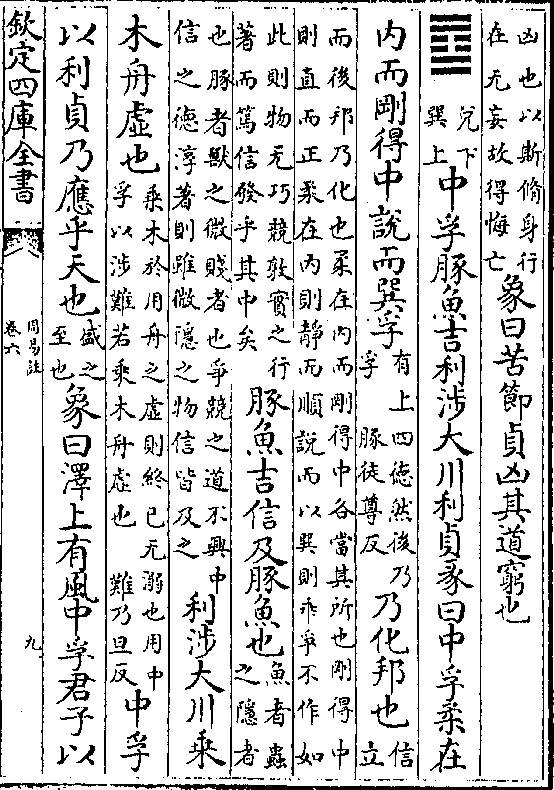 凶也以斯脩身行
在无妄故得悔亡
象曰苦節貞凶其道窮也
䷼
兌下
巽上
中孚豚魚吉利涉大川利貞彖曰中孚柔在
内而剛得中說而巽孚
有上四德然後乃
孚 豚徒尊反
乃化邦也
信
立
而後邦乃化也柔在内而剛得中各當其所也剛得中
則直而正柔在内則静而順說而以巽則乖爭不作如
此則物无巧競敦實之行
著而篤信發乎其中矣
豚魚吉信及豚魚也
魚者蟲
之隱者
也豚者獸之微賤者也爭競之道不興中
信之德淳著則雖微隱之物信皆及之
利涉大川乘
木舟虛也
乘木於用舟之虛則終已无溺也用中
孚以涉難若乘木舟虛也 難乃旦反
中孚
以利貞乃應乎天也
盛之
至也
象曰澤上有風中孚君子以
欽定四庫全書
周易註
卷六
九